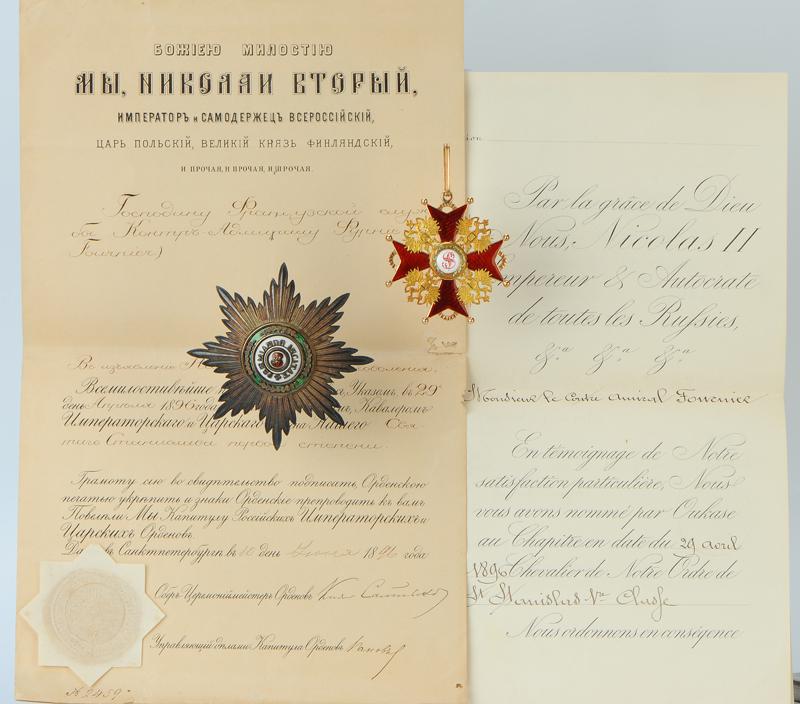 БОЖІЕЮ МИЛОСТІЮ
МЫ, НИКОЛАЙ ВТОРЫЙ,
ИМПЕРАТОРЪ и САМОДЕРЖЕЦЪ ВСЕРОССІЙСКІЙ,
ЦАРЬ ПОЛЬСКІЙ, ВЕЛИКІЙ КНЯЗЬ ФИНЛЯНДСКІЙ,
И ПРОЧАЯ, И ПРОЧАЯ, И ПРОЧАЯ.
Господину Французской служ
бы Контръ-Адмиралу Фурнье
Fournier)
Во изъявленіе
Всемилостивѣйше Указомъ въ 29
день Апрѣля 1896 года Кавалеромъ
Императорскаго и Царскаго Нашего Свя-
таго Станислава первой степени.
Грамоту сію во свидѣтельство подписать, Орденскою
печатью укрѣпить и знаки Орденскіе препроводить къ вамъ
Повелѣли Мы Капитулу Россійскихъ Императорскихъ и
Царскихъ Орденовъ.
въ Санктпетербургѣ въ 10 день 1896 года
Оберъ-Церемоніймейстеръ Орденовъ
Управляющій дѣлами Капитула Орденовъ
№ 2459
Par la grâce de Dieu
Nous, Nicolas II
mpereur & Autocrate
de toutes les Russies,
&ra &ra &ra
Monsieur le Contre Amiral Fournier
En témoignage de Notre
satisfaction particulière, Nous
vous avons nommé par Oukase
au Chapitre en date du 29 avril
1896 Chevalier de Notre Ordre de
St Stanislas 1re Classe
Nous ordonnons en conségence